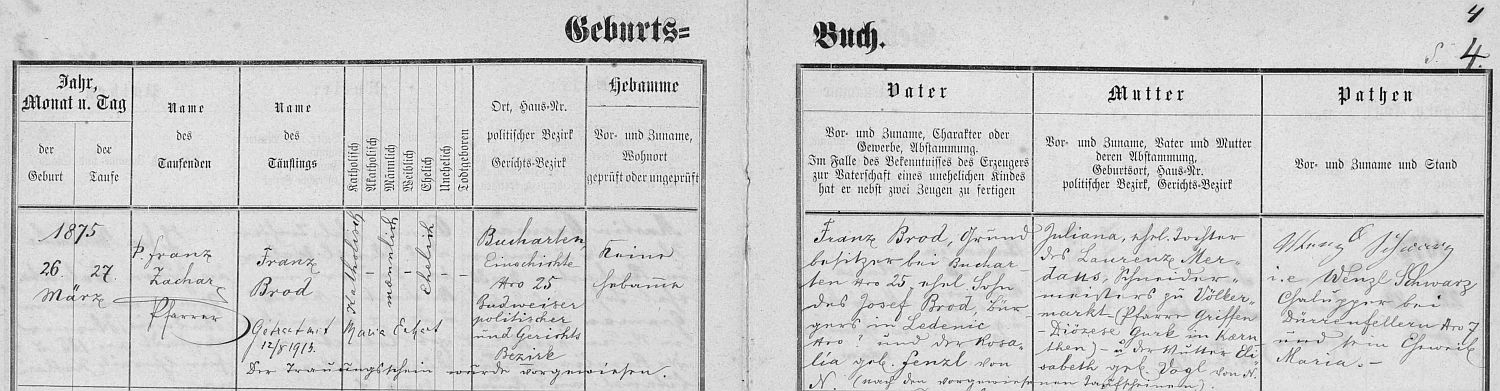 Geburts= Buch.
4
S. 4.
Jahr,
Monat u. Tag
der
Geburt
der
Taufe
Name
des
Taufenden
Name
des
Täuflings
Katholisch
Akatholisch
Männlich
Weiblich
Ehelich
Unehelich
Todtgeboren
Ort, Haus-Nr.
politischer Bezirk
Gerichts-Bezirk
Hebamme
Vor- und Zuname,
Wohnort
geprüft oder ungeprüft
Vater
Vor- und Zuname, Charakter oder
Gewerbe, Abstammung.
Im Falle des Bekenntnisses des Erzeugers
zur Vaterschaft eines unehelichen Kindes
hat er nebst zwei Zeugen zu fertigen
Mutter
Vor- und Zuname, Vater und Mutter
deren Abstammung,
Geburtsort, Haus-Nr.
politischer Bezirk, Gerichts-Bezirk
Pathen
Vor- und Zuname und Stand
1875
26 27.
März
P. Franz
Zachar
Pfarrer
Franz
Brod
Getraut mit Maria
12/8 1913.
Katholisch
-
männlich
-
Ehelich
-
-
Bucharten
Einschichte
Nro 25
Budweiser
politischer
und Gerichts
Bezirk
Keine
Hebamme
Der Trauungsschein wurde vorgewiesen.
Franz Brod, Grund
besitzer bei Buchar-
ten Nro 25, ehel. Sohn
des Josef Brod, Bür-
gers in Ledenic
Nro ? und der Rosa-
lia geb. Fenzl von
N. (nach den vorgewiesenen Taufscheinen).
Juliana, ehel. Tochter
des Laurenz Mer-
daus, Schneider-
meisters zu Völker-
markt (Pfarre Griffen
- Diözese Gurk in Kärn
then) - u. der Mutter Eli
sabeth geb. Vogl von N.
Wenzl Schwarz
i.e. Wenzl Schwarz
Chalupper bei
Dürrenfellern Nro 7
und sein Eheweib
Maria. -